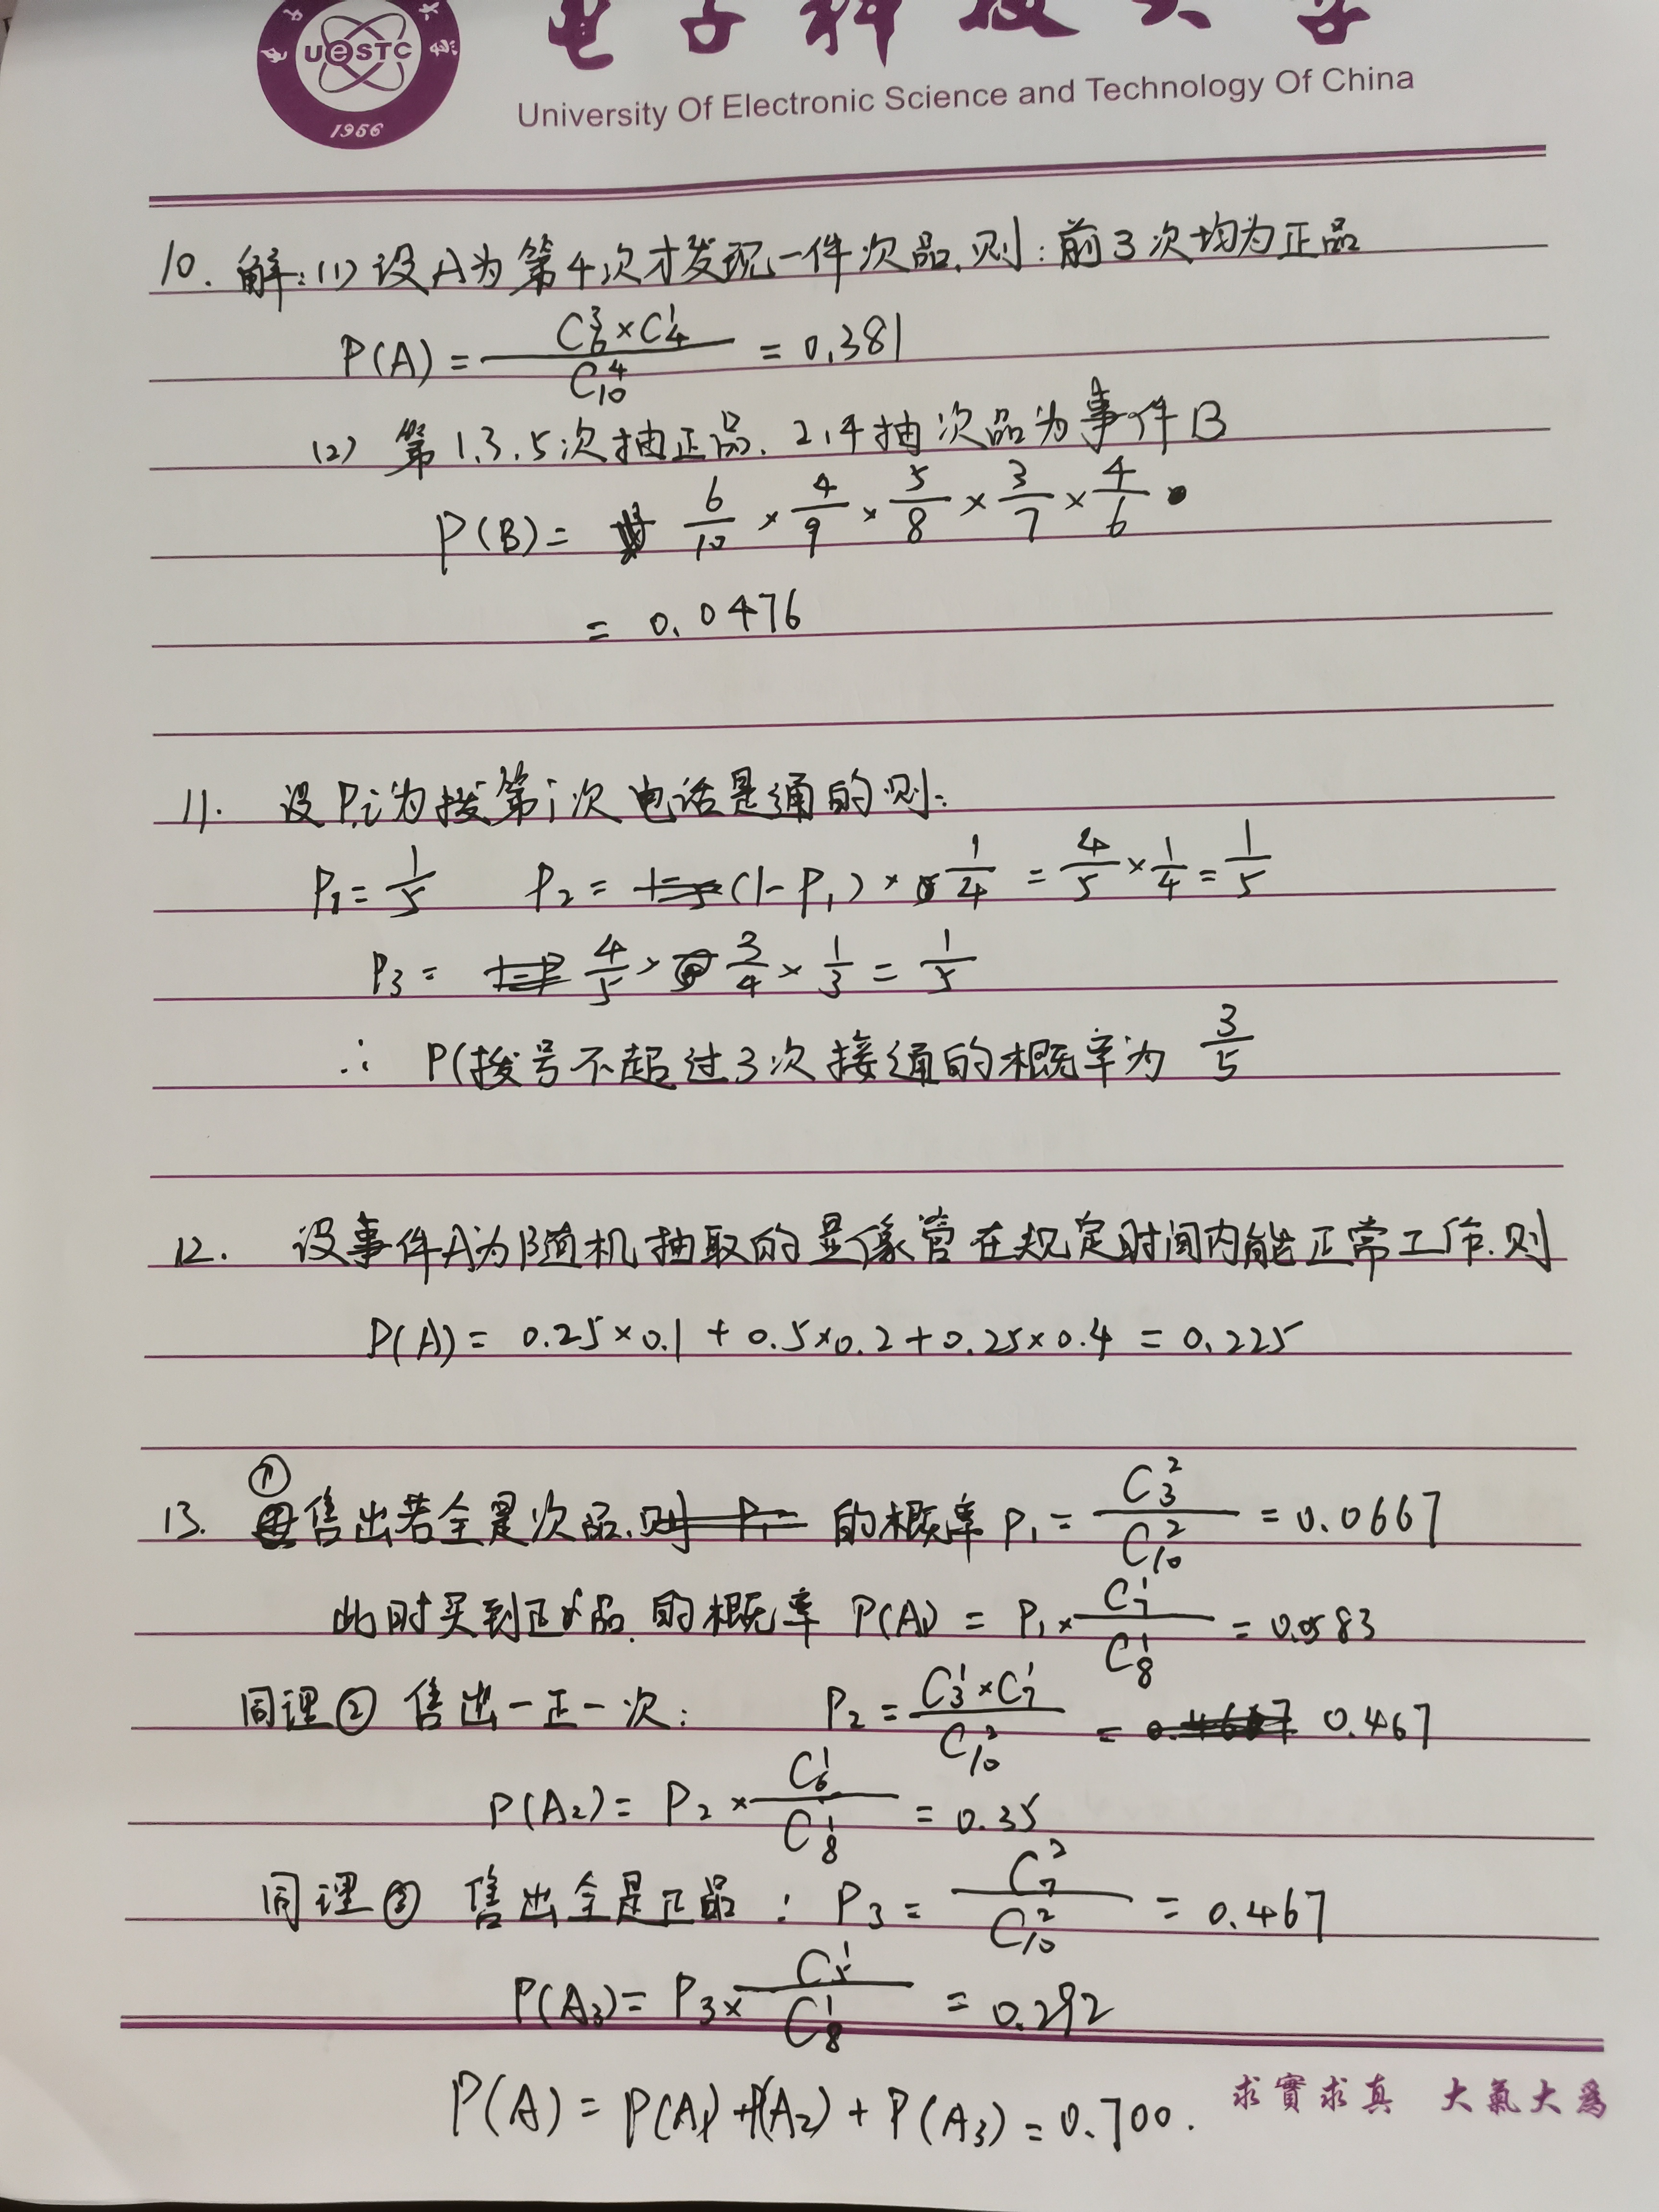 电子科技大学
UeSTC
1956
University Of Electronic Science and Technology Of China
10. 解:(1) 设A为第4次才发现一件次品,则:前3次均为正品
P(A) = \frac{C_6^3 × C_4^1}{C_{10}^4} = 0.381
(2) 第1.3.5次抽正品. 2,4抽次品为事件B
P(B) = \frac{6}{10} × \frac{4}{9} × \frac{5}{8} × \frac{3}{7} × \frac{4}{6}
= 0.0476
11. 设P_i为拨第i次电话是通的则:
P_1 = \frac{1}{5} P_2 = (1-P_1) × \frac{1}{4} = \frac{4}{5} × \frac{1}{4} = \frac{1}{5}
P_3 = \frac{4}{5} × \frac{3}{4} × \frac{1}{3} = \frac{1}{5}
∴ P(拨号不超过3次接通的概率为 \frac{3}{5}
12. 设事件A为随机抽取的显像管在规定时间内能正常工作.则
P(A) = 0.25×0.1 + 0.5×0.2 + 0.25×0.4 = 0.225
13. ① 售出若全是次品, 的概率 P_1 = \frac{C_3^2}{C_{10}^2} = 0.0667
此时买到正品的概率 P(A_1) = P_1 × \frac{C_7^1}{C_8^1} = 0.0583
同理② 售出一正一次: P_2 = \frac{C_3^1 × C_7^1}{C_{10}^2} = 0.467
P(A_2) = P_2 × \frac{C_6^1}{C_8^1} = 0.35
同理③ 售出全是正品: P_3 = \frac{C_7^2}{C_{10}^2} = 0.467
P(A_3) = P_3 × \frac{C_5^1}{C_8^1} = 0.292
P(A) = P(A_1) + P(A_2) + P(A_3) = 0.700.
求實求真 大氣大為